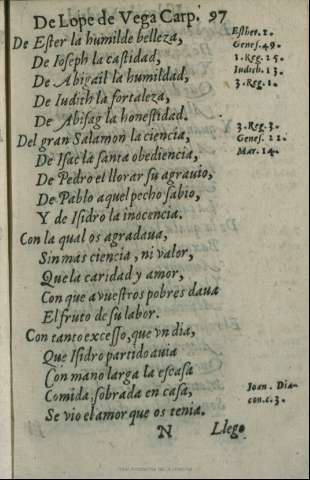 De Lope de Vega Carp. 97
De Ester la humilde belleza,
Esther. 2.
De Ioseph la castidad,
Genes. 49.
De Abigail la humildad,
1. Reg. 25.
De Iudith la fortaleza,
Iudith. 13.
De Abisag la honestidad.
3. Reg. 1.
Del gran Salamon la ciencia,
3. Reg. 3.
De Isac la santa obediencia,
Genes. 22.
De Pedro el llorar su agrauio,
Mar. 14.
De Pablo aquel pecho sabio,
Y de Isidro la inocencia.
Con la qual os agradaua,
Sin mas ciencia, ni valor,
Que la caridad y amor,
Con que a vuestros pobres daua
El fruto de su labor.
Con tanto excesso, que vn dia,
Que Isidro partido auia
Con mano larga la escasa
Comida, sobrada en casa,
Ioan. Dia-
con. c. 3.
Se vio el amor que os tenia.
N Llego